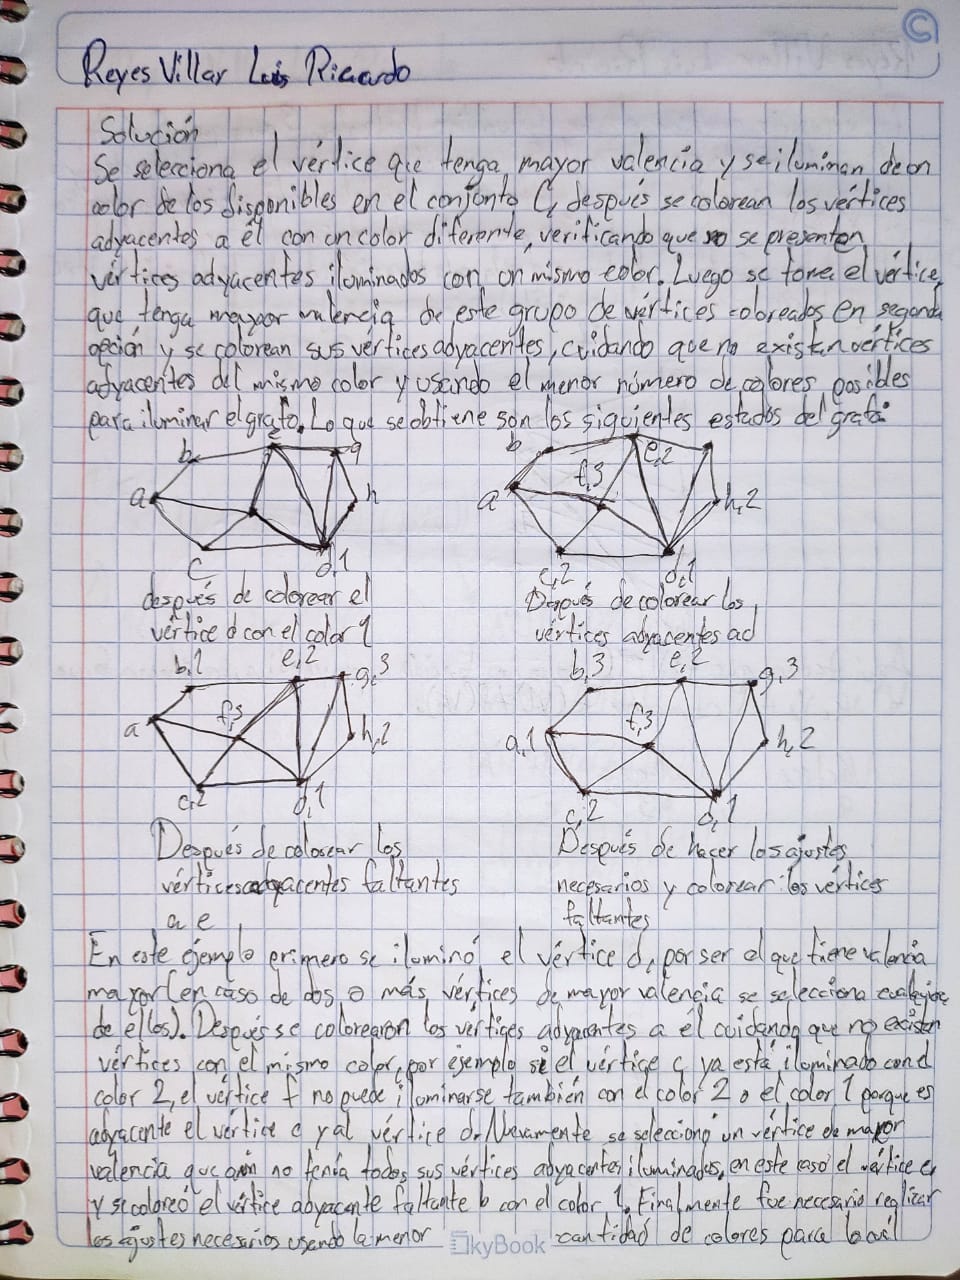 Reyes Villar Luis Ricardo
Solución
Se selecciona el vértice que tenga mayor valencia y se iluminan de un
color de los disponibles en el conjunto C, después se colorean los vértices
adyacentes a él con un color diferente, verificando que no se presenten
vértices adyacentes iluminados con un mismo color. Luego se toma el vértice
que tenga mayor valencia de este grupo de vértices coloreados en segunda
opción y se colorean sus vértices adyacentes, cuidando que no existan vértices
adyacentes del mismo color y usando el menor número de colores posibles
para iluminar el grafo. Lo que se obtiene son los siguientes estados del grafo:
b e g
a h
c d,1
después de colorear el
vértice d con el color 1
b e,2
a f,3 h,2
c,2 d,1
Después de colorear los
vértices adyacentes a d
b,1 e,2 g,3
a f,3 h,2
c,2 d,1
Después de colorear los
vértices adyacentes faltantes
a e
b,3 e,2 g,3
a,1 f,3 h,2
c,2 d,1
Después de hacer los ajustes
necesarios y colorear los vértices
faltantes
En este ejemplo primero se iluminó el vértice d, por ser el que tiene valencia
mayor (en caso de dos o más vértices de mayor valencia se selecciona cualquiera
de ellos). Después se colorearon los vértices adyacentes a él cuidando que no existan
vértices con el mismo color, por ejemplo si el vértice c ya está iluminado con el
color 2, el vértice f no puede iluminarse también con el color 2 o el color 1 porque es
adyacente el vértice c y al vértice d. Nuevamente se seleccionó un vértice de mayor
valencia que aún no tenía todos sus vértices adyacentes iluminados, en este caso el vértice e
y se coloreó el vértice adyacente faltante b con el color 1. Finalmente fue necesario realizar
los ajustes necesarios usando la menor cantidad de colores para lo cual
SkyBook